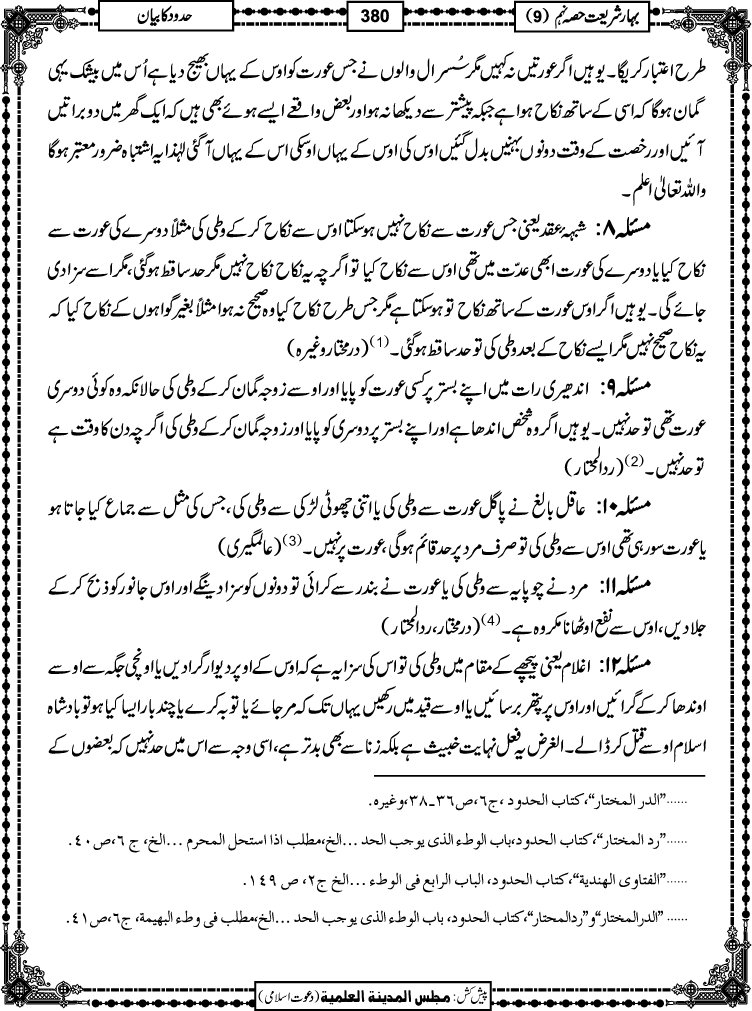 بہارِ شریعت حصہ نہم (9)
380
حدود کا بیان
طرح اعتبار کریگا۔ یوہیں اگر عورتیں نہ کہیں مگر سُسرال والوں نے جس عورت کو اوس کے یہاں بھیج دیا ہے اُس میں بیشک یہی
گمان ہوگا کہ اسی کے ساتھ نکاح ہوا ہے جبکہ پیشتر سے دیکھا نہ ہو اور بعض واقعے ایسے ہوئے بھی ہیں کہ ایک گھر میں دو براتیں
آئیں اور رخصت کے وقت دونوں بہنیں بدل گئیں اوس کی اوس کے یہاں اوسکی اس کے یہاں آگئی لہٰذا یہ اشتباہ ضرور معتبر ہوگا
واللہ تعالیٰ اعلم۔
مسئلہ ۸: شبہۂ عقد یعنی جس عورت سے نکاح نہیں ہوسکتا اوس سے نکاح کرکے وطی کی مثلاً دوسرے کی عورت سے
نکاح کیا یا دوسرے کی عورت ابھی عدّت میں تھی اوس سے نکاح کیا تو اگرچہ یہ نکاح نکاح نہیں مگر حد ساقط ہوگئی، مگر اسے سزا دی
جائے گی۔ یوہیں اگر اوس عورت کے ساتھ نکاح تو ہوسکتا ہے مگر جس طرح نکاح کیا وہ صحیح نہ ہوا مثلاً بغیر گواہوں کے نکاح کیا کہ
یہ نکاح صحیح نہیں مگر ایسے نکاح کے بعد وطی کی تو حد ساقط ہوگئی۔(1) (درمختار وغیرہ)
مسئلہ ۹: اندھیری رات میں اپنے بستر پر کسی عورت کو پایا اور اوسے زوجہ گمان کرکے وطی کی حالانکہ وہ کوئی دوسری
عورت تھی تو حد نہیں۔ یوہیں اگر وہ شخص اندھا ہے اور اپنے بستر پر دوسری کو پایا اور زوجہ گمان کرکے وطی کی اگرچہ دن کا وقت ہے
تو حد نہیں۔(2) (ردالمحتار)
مسئلہ ۱۰: عاقل بالغ نے پاگل عورت سے وطی کی یا اتنی چھوٹی لڑکی سے وطی کی، جس کی مثل سے جماع کیا جاتا ہو
یا عورت سو رہی تھی اوس سے وطی کی تو صرف مرد پر حد قائم ہوگی، عورت پر نہیں۔(3) (عالمگیری)
مسئلہ ۱۱: مرد نے چوپایہ سے وطی کی یا عورت نے بندر سے کرائی تو دونوں کو سزا دینگے اور اوس جانور کو ذبح کرکے
جلادیں، اوس سے نفع اوٹھانا مکروہ ہے۔(4) (درمختار، ردالمحتار)
مسئلہ ۱۲: اغلام یعنی پیچھے کے مقام میں وطی کی تو اس کی سزا یہ ہے کہ اوس کے اوپر دیوار گرادیں یا اونچی جگہ سے اوسے
اوندھا کرکے گرائیں اور اوس پر پتھر برسائیں یا اوسے قید میں رکھیں یہاں تک کہ مرجائے یا توبہ کرے یا چند بار ایسا کیا ہو تو بادشاہ
اسلام اوسے قتل کر ڈالے۔ الغرض یہ فعل نہایت خبیث ہے بلکہ زنا سے بھی بدتر ہے، اسی وجہ سے اس میں حد نہیں کہ بعضوں کے
......”الدر المختار“، کتاب الحدود، ج٦، ص٣٦۔٣٨، وغیرہ.
......”رد المحتار“، کتاب الحدود، باب الوطء الذی یوجب الحد ...الخ، مطلب اذا استحل المحرم ...الخ، ج ٦، ص٤٠.
......”الفتاوی الھندیة“، کتاب الحدود، الباب الرابع فی الوطء ...الخ ج٢، ص ١٤٩.
...... ”الدرالمختار“و”ردالمحتار“، کتاب الحدود، باب الوطء الذی یوجب الحد ...الخ، مطلب فی وطء البھیمة، ج٦، ص٤١.
پیش کش: مجلس المدینة العلمیة (دعوت اسلامی)